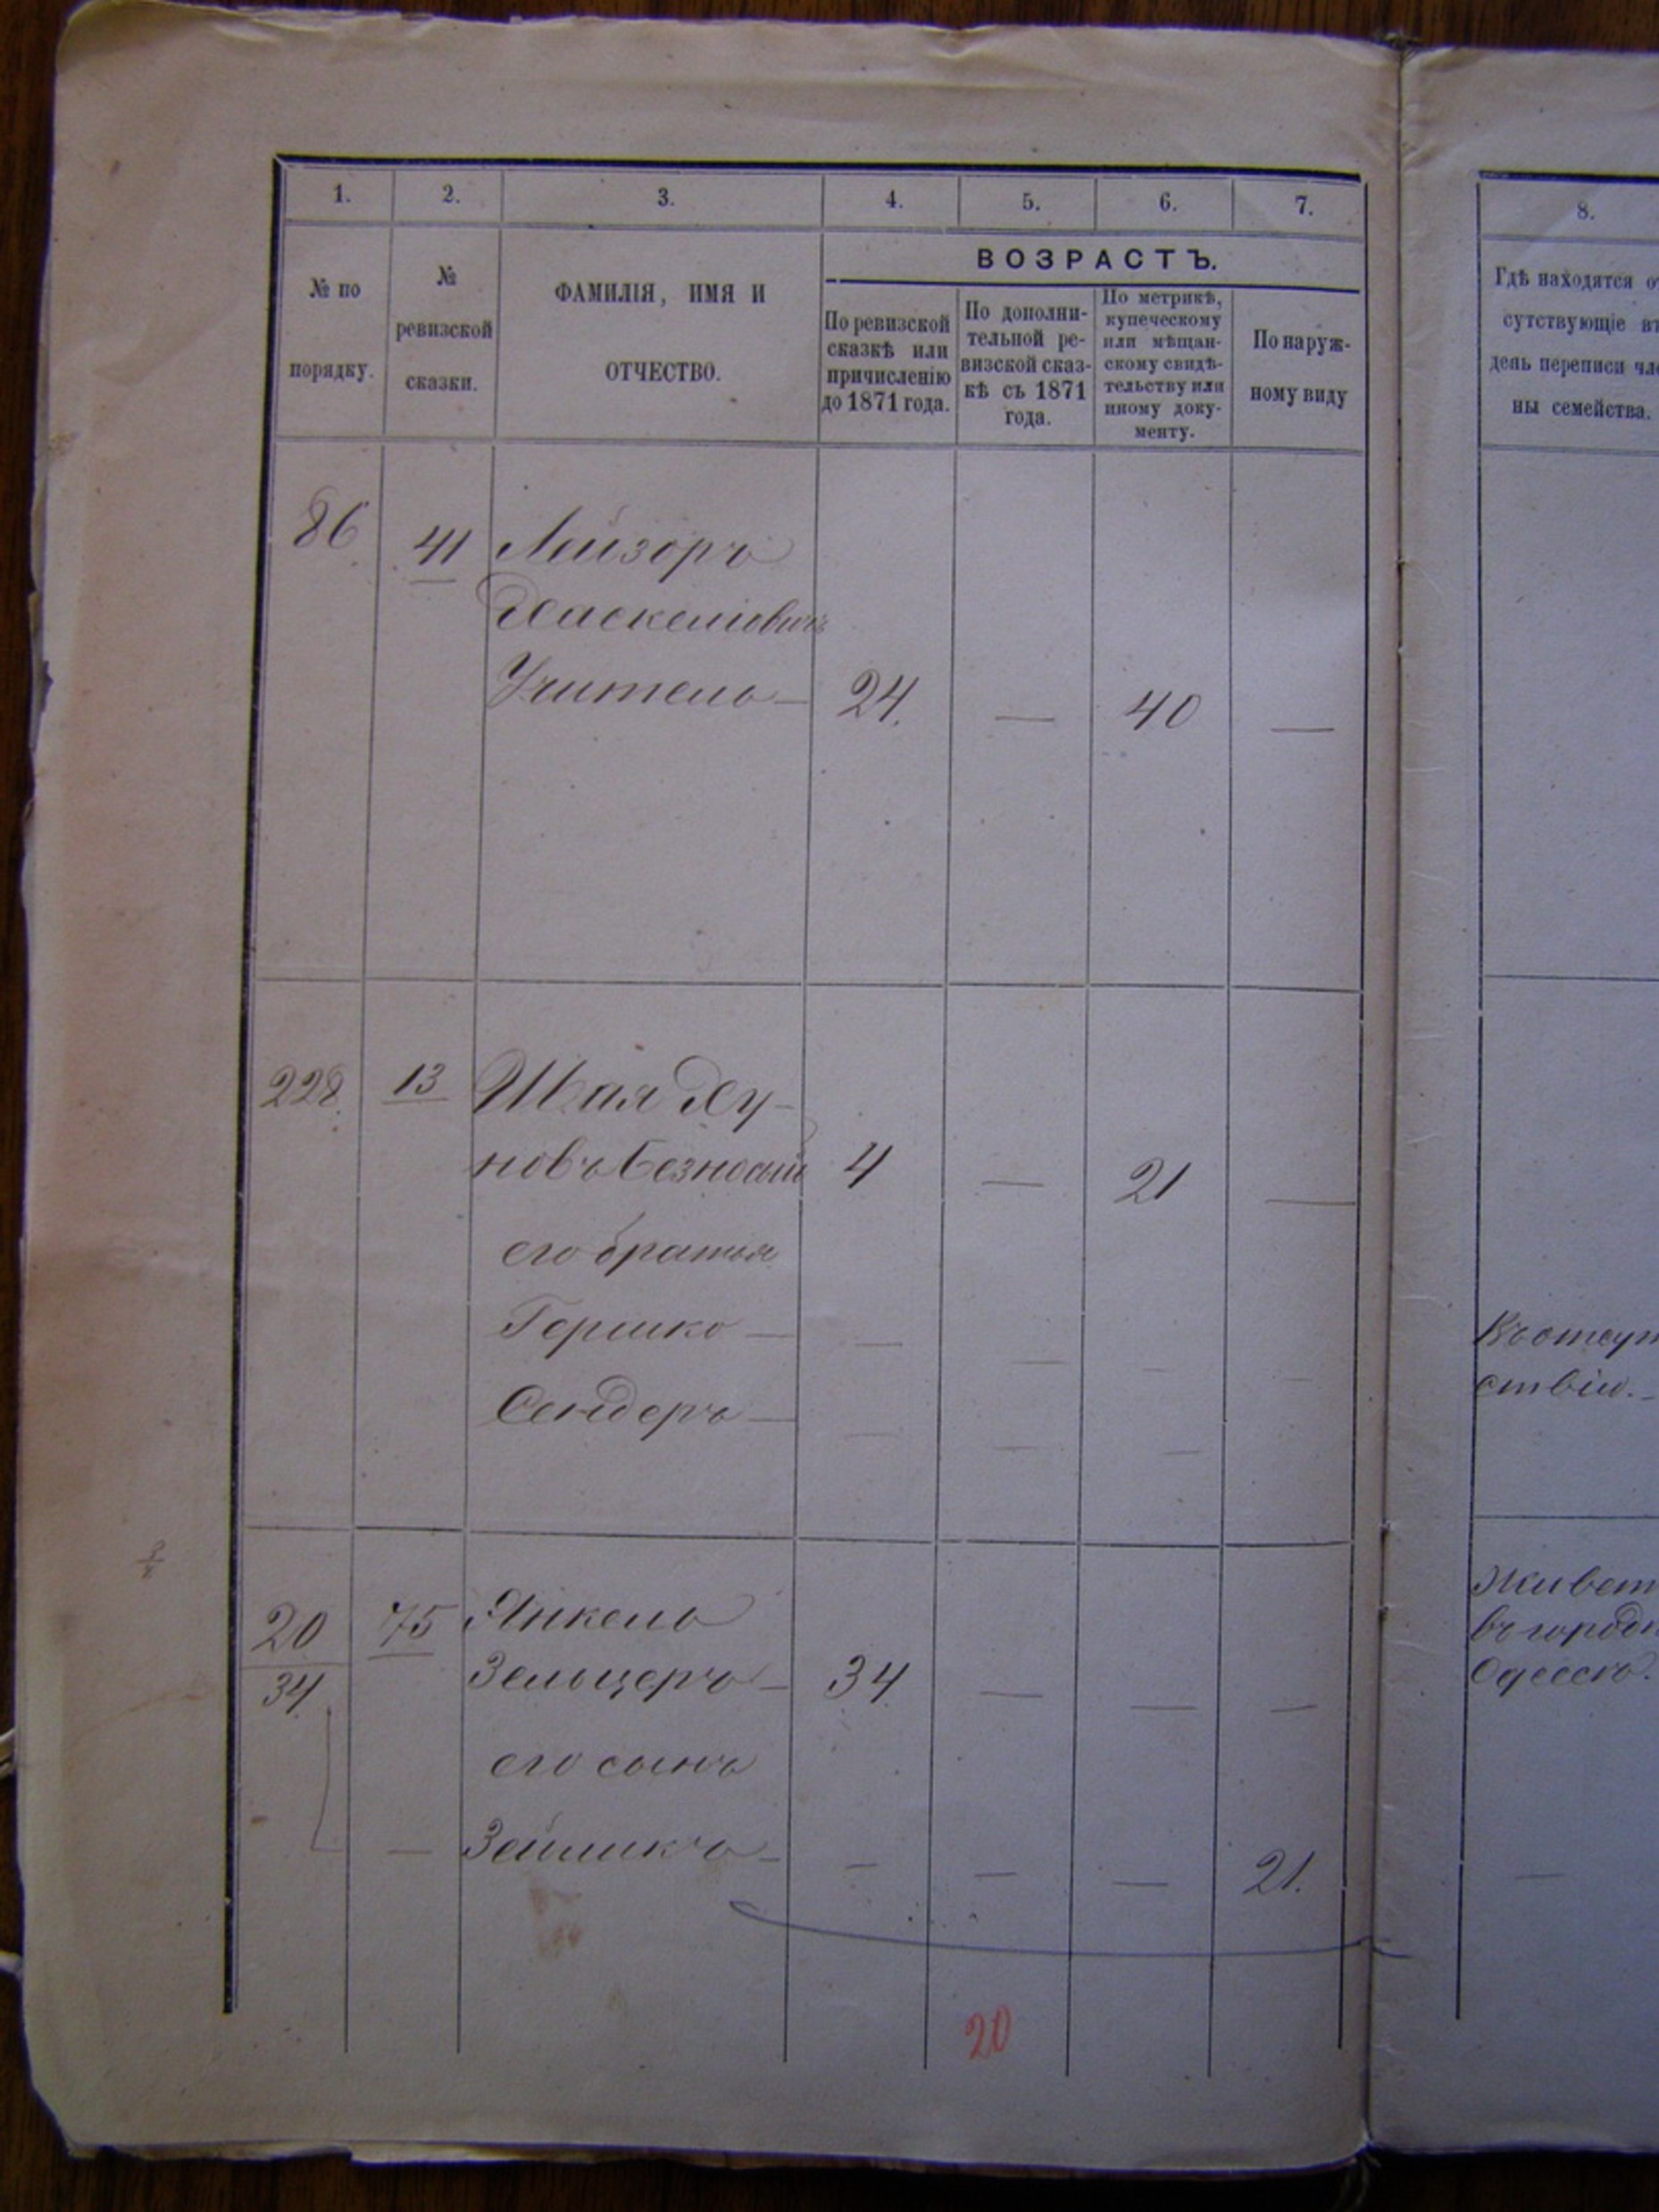 1.
2.
3.
4.
5.
6.
7.
8.
№ по
порядку.
№
ревизской
сказки.
ФАМИЛІЯ, ИМЯ И
ОТЧЕСТВО.
ВОЗРАСТЪ.
По ревизской
сказкѣ или
причисленію
до 1871 года.
По дополни-
тельной ре-
визской сказ-
кѣ съ 1871
года.
По метрикѣ,
купеческому
или мѣщан-
скому свидѣ-
тельству или
иному доку-
менту.
По наруж-
ному виду
Гдѣ находятся от
сутствующіе въ
день переписи чле
ны семейства.
86 41 Лейзоръ
Хаскеліовичъ
Учитель — 24. — 40 —
228. 13 Шая Ху-
новъ Безносый 4 — 21 —
его братья
Гершко — — — — —
Сендеръ — — — —
Въ отсут
ствіи. —
20 75 Янкель
34. Зельцеръ — 34 — — —
его сынъ
— Зейликъ — — — — 21.
Живет
въ городѣ
Одессѣ.
—
20